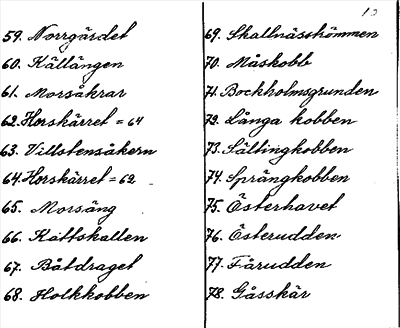 59. Norrgärdet
60. Källängen
61. Morsåkrar
62. Horskärret = 64
63. Villstensåkern
64. Horskärret = 62
65. Morsäng
66. Kattskallen
67. Båtdraget
68. Holkkobben
69. Skallnässtömmen
70. Måskobb
71. Bockholmsgrunden
72. Långa kobben
73. Sältingkobben
74. Sprängkobben
75. Österhavet
76. Österudden
77. Fårudden
78. Gåsskär